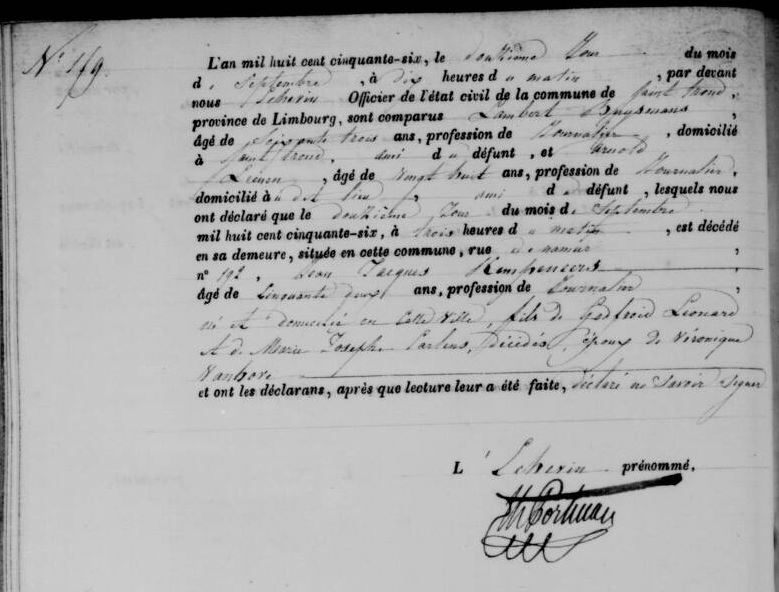 N° 119.
L'an mil huit cent cinquante-six, le douzième Jour du mois
d. Septembre, à dix heures du matin, par devant
nous Echevin Officier de l'état civil de la commune de Saint trond,
province de Limbourg, sont comparus Lambert Buysmans,
âgé de Soixante trois ans, profession de Journalier, domicilié
à Saint trond, ami du défunt, et Arnold
Lienen, âgé de vingt huit ans, profession de Journalier,
domicilié à u dit lieu, ami du défunt, lesquels nous
ont déclaré que le douzième Jour du mois de Septembre
mil huit cent cinquante-six, à trois heures du matin, est décédé
en sa demeure, située en cette commune, rue de namur,
n° 192, Jean Jacques
âgé de Cinquante deux ans, profession de Journalier,
né et domicilié en cette Ville, fils de Godfroid Leonard
et de Marie Josephe Carlens, décédés, époux de Véronique
Vanhove
et ont les déclarans, après que lecture leur a été faite, déclaré ne savoir signer
L'Echevin prénommé.